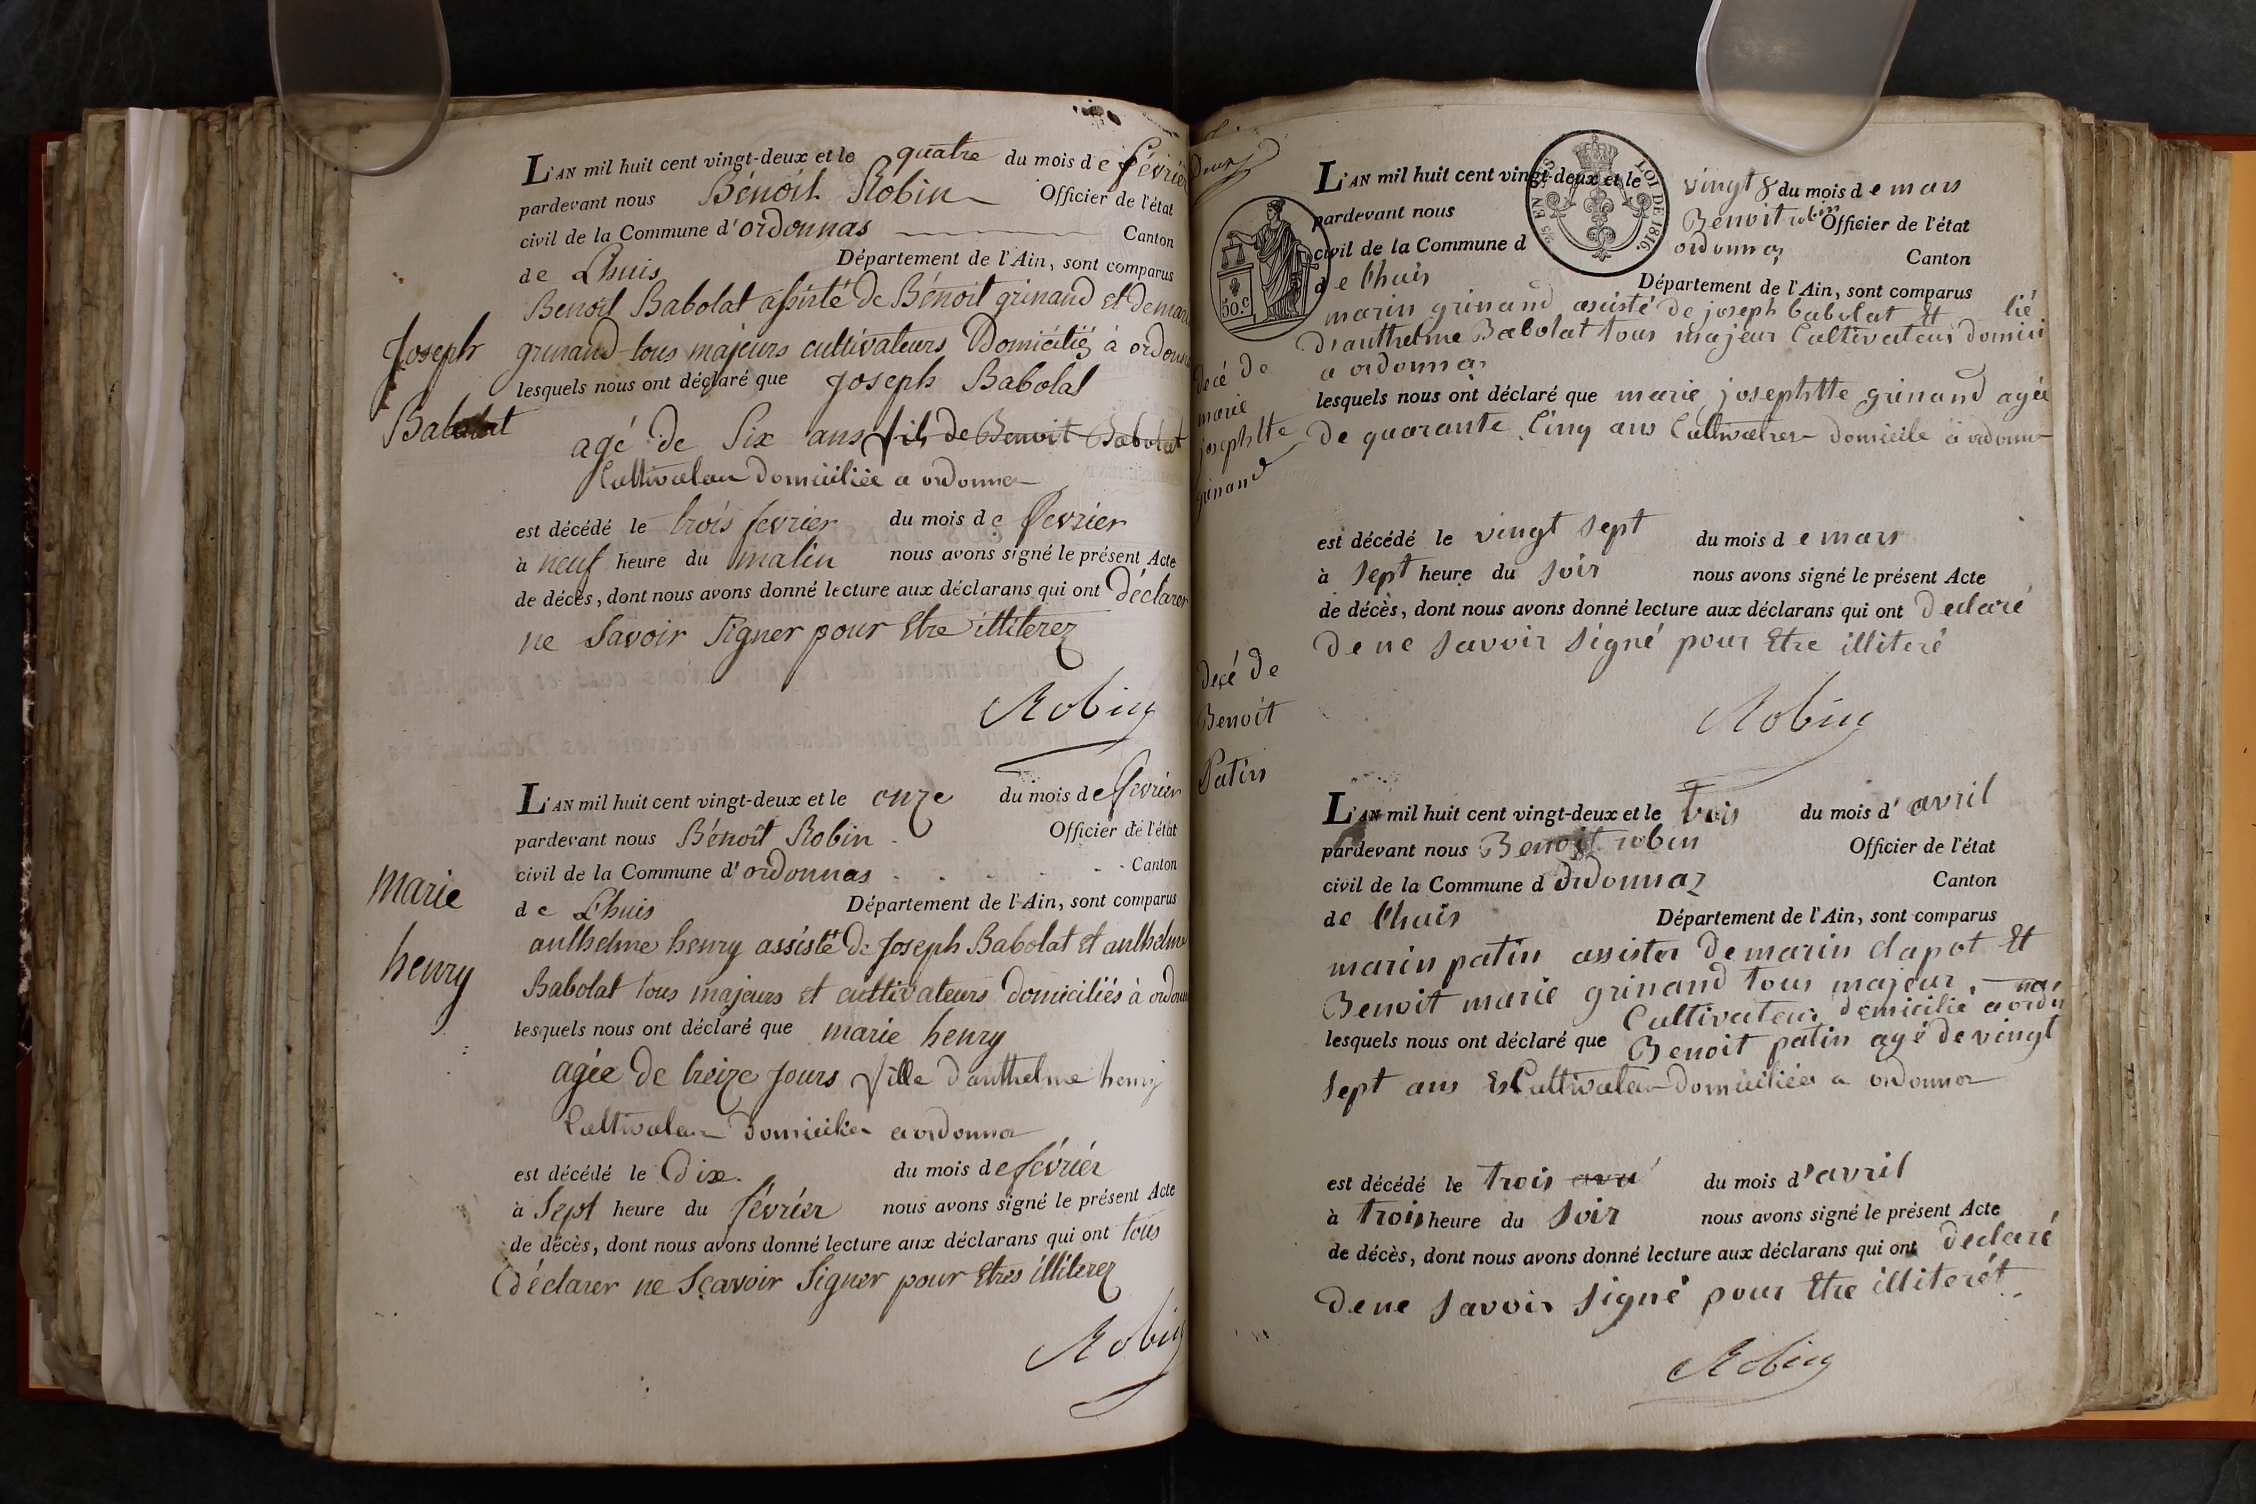 Joseph
Babolat
L'AN mil huit cent vingt-deux et le quatre du mois de février
pardevant nous Bénoit Robin Officier de l'état
civil de la Commune d'ordonnas Canton
de Lhuis Département de l'Ain, sont comparus
Benoit Babolat assisté de Bénoit grinand et de
grinand tous majeurs cultivateurs Domiciliés à
lesquels nous ont déclaré que Joseph Babolat
agé de Six ans fils de Benoit Babolat
Cultivateur domiciliée a ordonna
est décédé le trois fevrier du mois de fevrier
à neuf heure du matin nous avons signé le présent Acte
de décès, dont nous avons donné lecture aux déclarans qui ont déclarer
ne Savoir Signer pour Etre illiterez
Robin
marie
henry
L'AN mil huit cent vingt-deux et le onze du mois de fevrier
pardevant nous Bénoit Robin Officier de l'état
civil de la Commune d'ordonnas Canton
de Lhuis Département de l'Ain, sont comparus
anthelme henry assisté de Joseph Babolat et anthelme
Babolat tous majeurs et cultivateurs domiciliés à
lesquels nous ont déclaré que marie henry
agée de treize Jours fille d'anthelme henry
Cultivateur domicilier a ordonna
est décédé le Dix du mois de février
à Sept heure du février nous avons signé le présent Acte
de décès, dont nous avons donné lecture aux déclarans qui ont tous
déclarer ne Sçavoir Signer pour Etres illiterez
Robin
deux
50.c
EN SUS
LOI DE 1816.
decé de
marie
josephtte
grinand
L'AN mil huit cent vingt-deux et le vingt 8 du mois de mars
pardevant nous Benoit robin Officier de l'état
civil de la Commune d ordonnaz Canton
de lhuis Département de l'Ain, sont comparus
marin grinand assisté de joseph babolat et
d'anthelme Babolat tous majeur Cultivateur domicilié
a ordonnas
lesquels nous ont déclaré que marie josephtte grinand agée
de quarante Cinq ans Domicile à
est décédé le vingt sept du mois de mars
à Sept heure du soir nous avons signé le présent Acte
de décès, dont nous avons donné lecture aux déclarans qui ont declaré
de ne savoir signé pour Etre illiteré
Robin
decé de
Benoit
Patin
L'AN mil huit cent vingt-deux et le trois du mois d'avril
pardevant nous Benoit robin Officier de l'état
civil de la Commune d ordonnaz Canton
de lhuis Département de l'Ain, sont comparus
marin patin assister de marin clapot et
Benoit marie grinand tous majeur
Cultivateur domicilié a
lesquels nous ont déclaré que Benoit patin agé de vingt
sept ans Cultivateur domiciliée a ordonna
est décédé le trois du mois d'avril
à trois heure du soir nous avons signé le présent Acte
de décès, dont nous avons donné lecture aux déclarans qui ont declaré
de ne savoir signé pour Etre illiterét
Robin